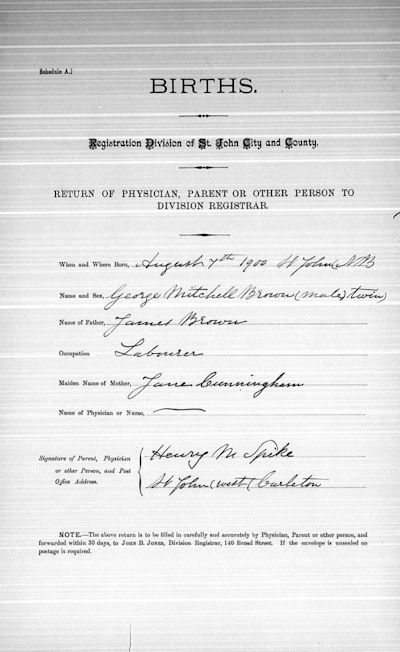 Schedule A.]
BIRTHS.
Registration Division of St. John City and County.
RETURN OF PHYSICIAN, PARENT OR OTHER PERSON TO
DIVISION REGISTRAR.
When and Where Born, August 7th 1900 St John, NB
Name and Sex, George Mitchell Brown (male) twin
Name of Father, James Brown
Occupation Labourer
Maiden Name of Mother, Jane Cunningham
Name of Physician or Nurse, —
Signature of Parent, Physician
or other Person, and Post
Office Address.
Henry M Spike
St John (west) Carleton
NOTE.—The above return is to be filled in carefully and accurately by Physician, Parent or other person, and
forwarded within 30 days, to JOHN B. JONES, Division Registrar, 140 Broad Street. If the envelope is unsealed no
postage is required.